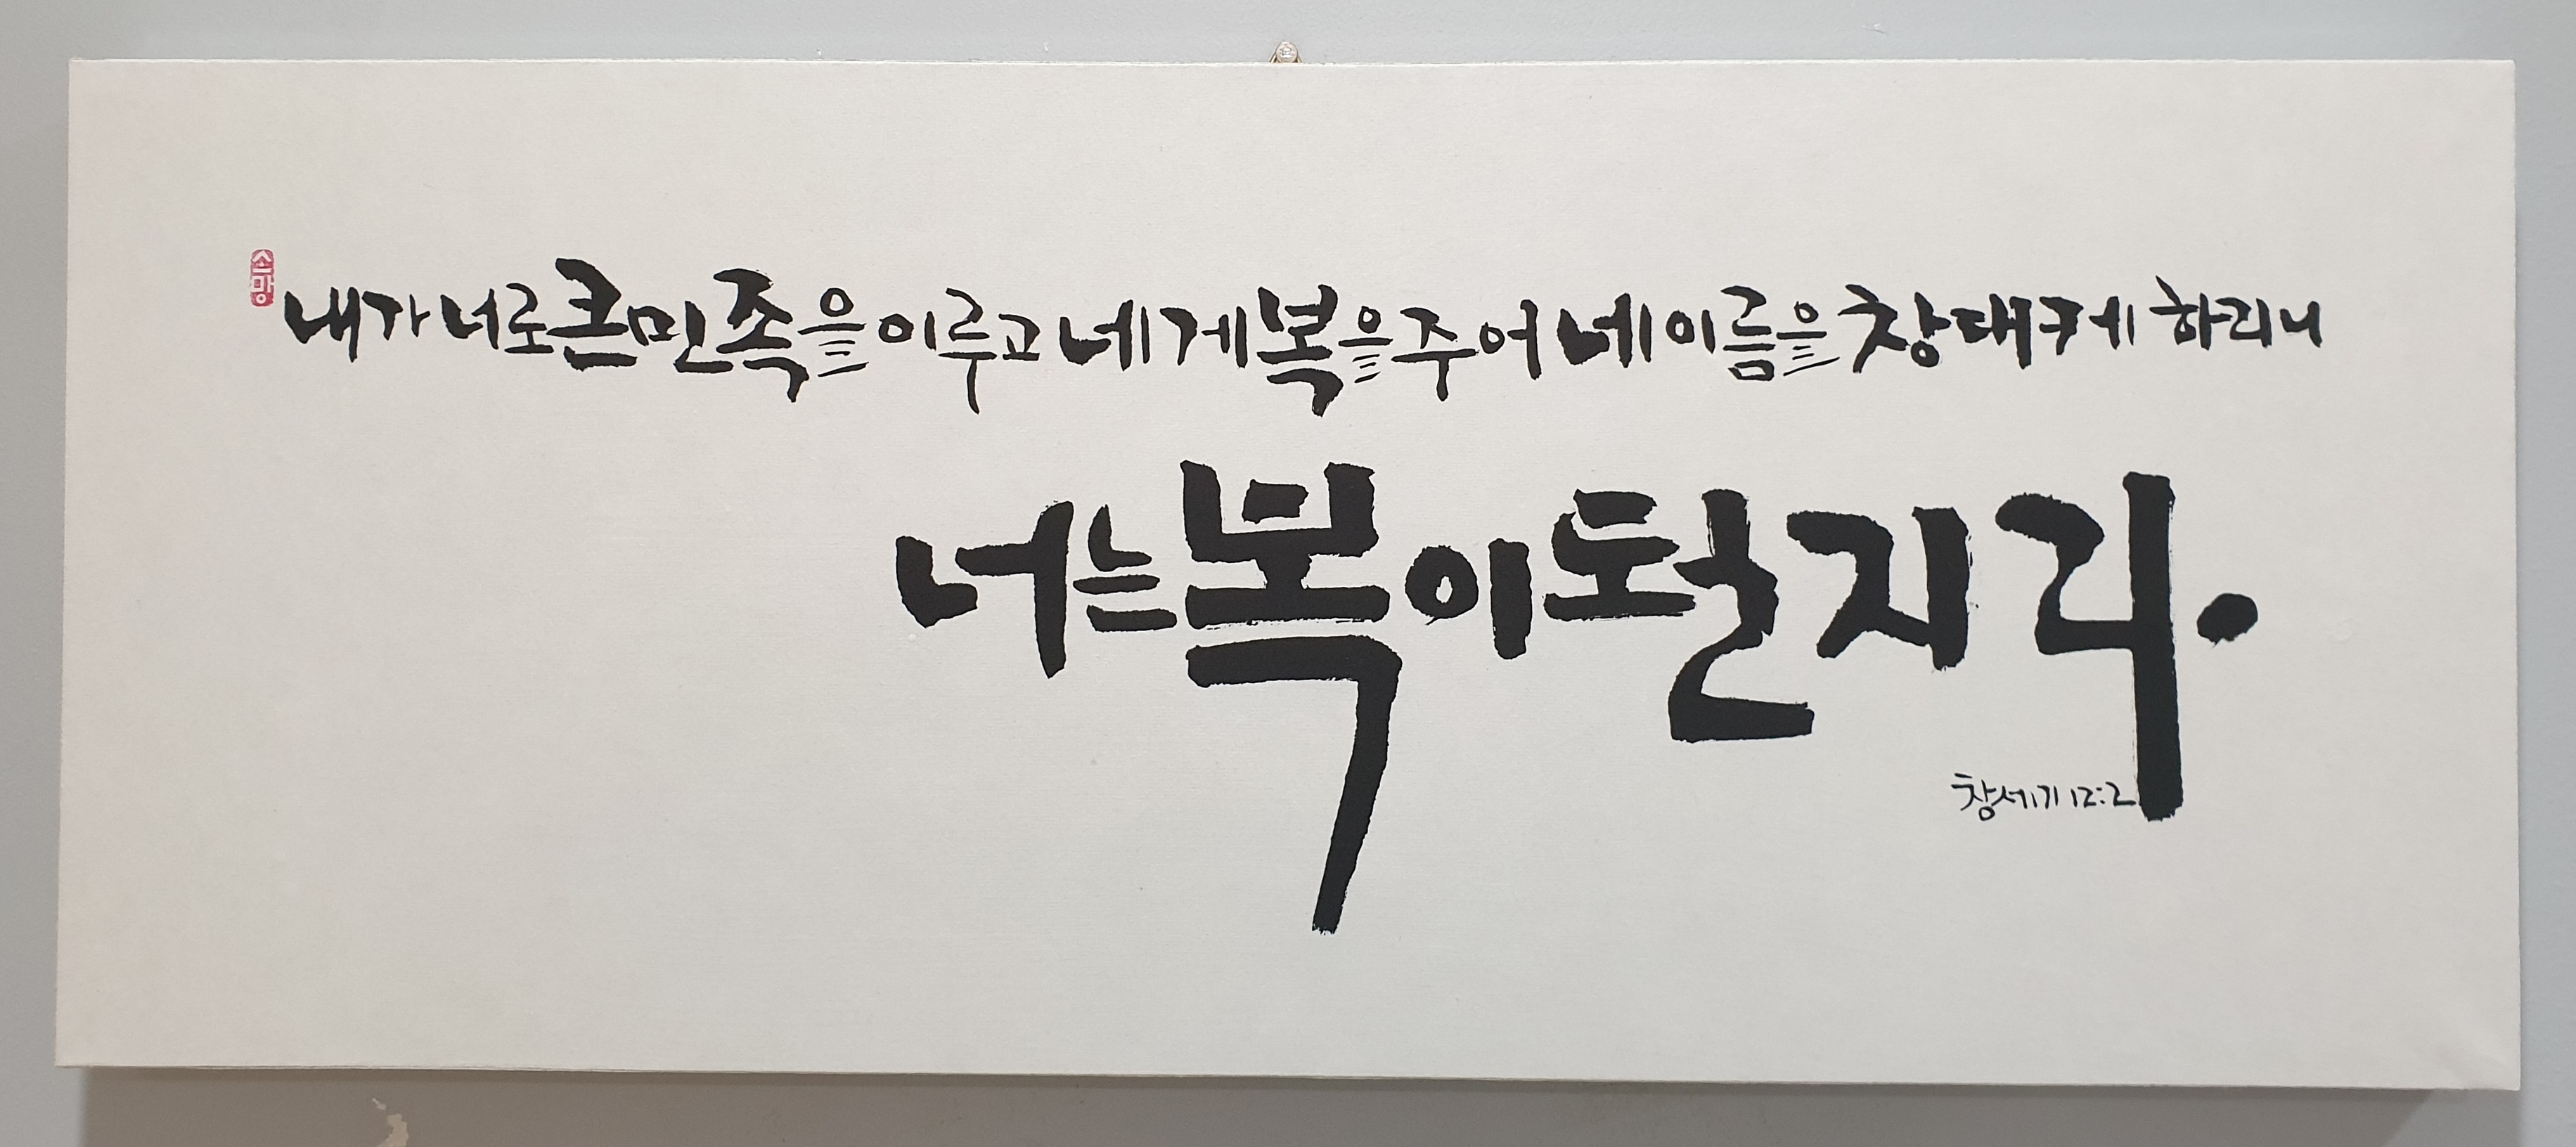 소망
내가 너로 큰 민족을 이루고 네게 복을 주어 네 이름을 창대케 하리니
너는 복이 될지라.
창세기 12:2